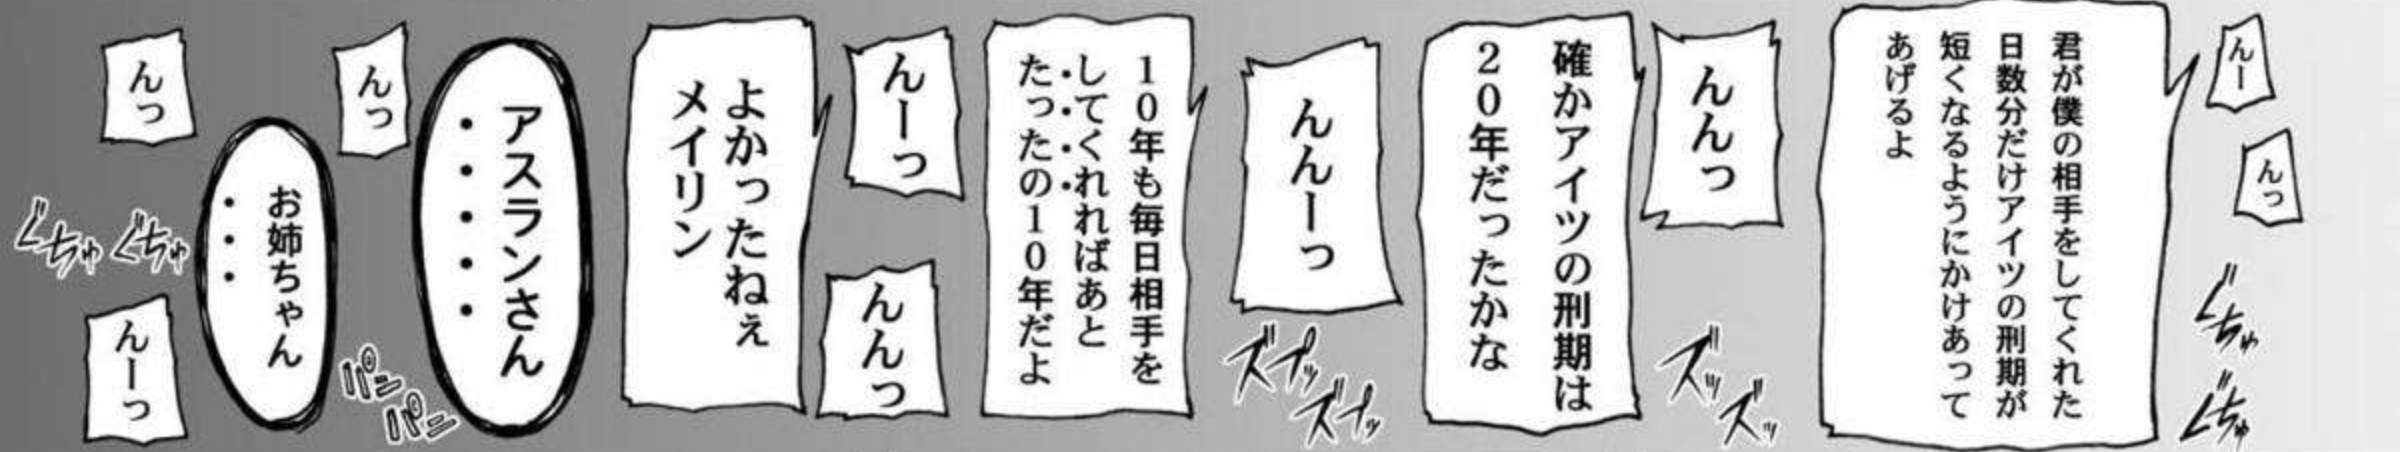 んー
んっ
ぐちゅ
ぐちゅ
君が僕の相手をしてくれた
日数分だけアイツの刑期が
短くなるようにかけあって
あげるよ
んんっ
ズッ
ズッ
確かアイツの刑期は
20年だったかな
んんーっ
ズプッ
ズプッ
10年も毎日相手を
してくれればあと
たったの10年だよ
んーっ
んんっ
よかったねぇ
メイリン
アスランさん
・・・・・
んっ
パン
パン
お姉ちゃん
・・・
んっ
ぐちゅ
ぐちゅ
んーっ